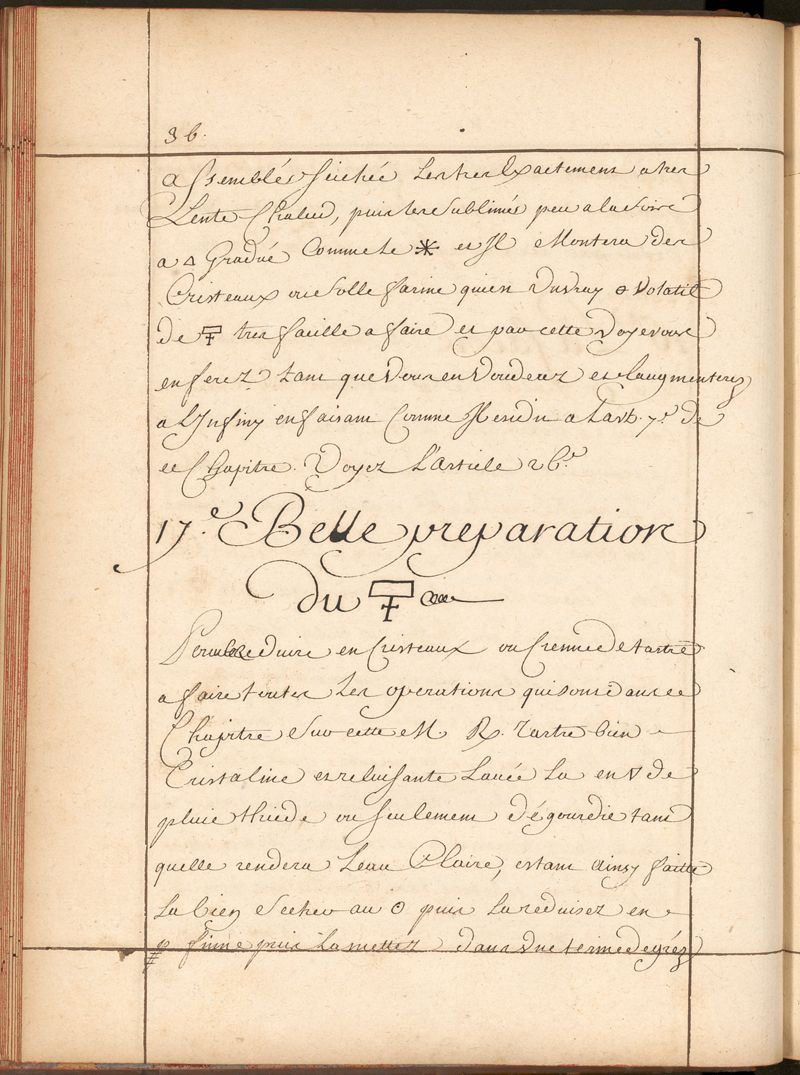 36.
assemblés seichée les tres Exactement a tres
Lente Chaleur, puis les sublimés peu a la foire
a 🜂 Gradué Comme le ✳ et Il Montera des
Cristeaux ou folle farine qui en Un vray 🜔 Volatil
de 🜿 tres facille a faire et par cette Voye vous
en ferez tant que Vous en Voudrez et l'augmenterez
a L'Infiny en faisant Comme Il est dit a L'art. 7.e de
ce Chapitre. Voyez L'article 26.e
17.e Belle preparation
du 🜿
Pour le Reduire en Cristeaux ou Cremede tartre
a faire toutes Les operations qui sont dans ce
Chapitre sur cette M R. Tartre bien
Cristaline et reluisante Lavée La en 🜄 de
pluie thiede ou seulement dégourdie tant
quelle rendera Leau Claire, estant ainsy faitte
La bien Secher au ☉ puis La reduisez en
finne puis La mettez dans Une terrine de gréz